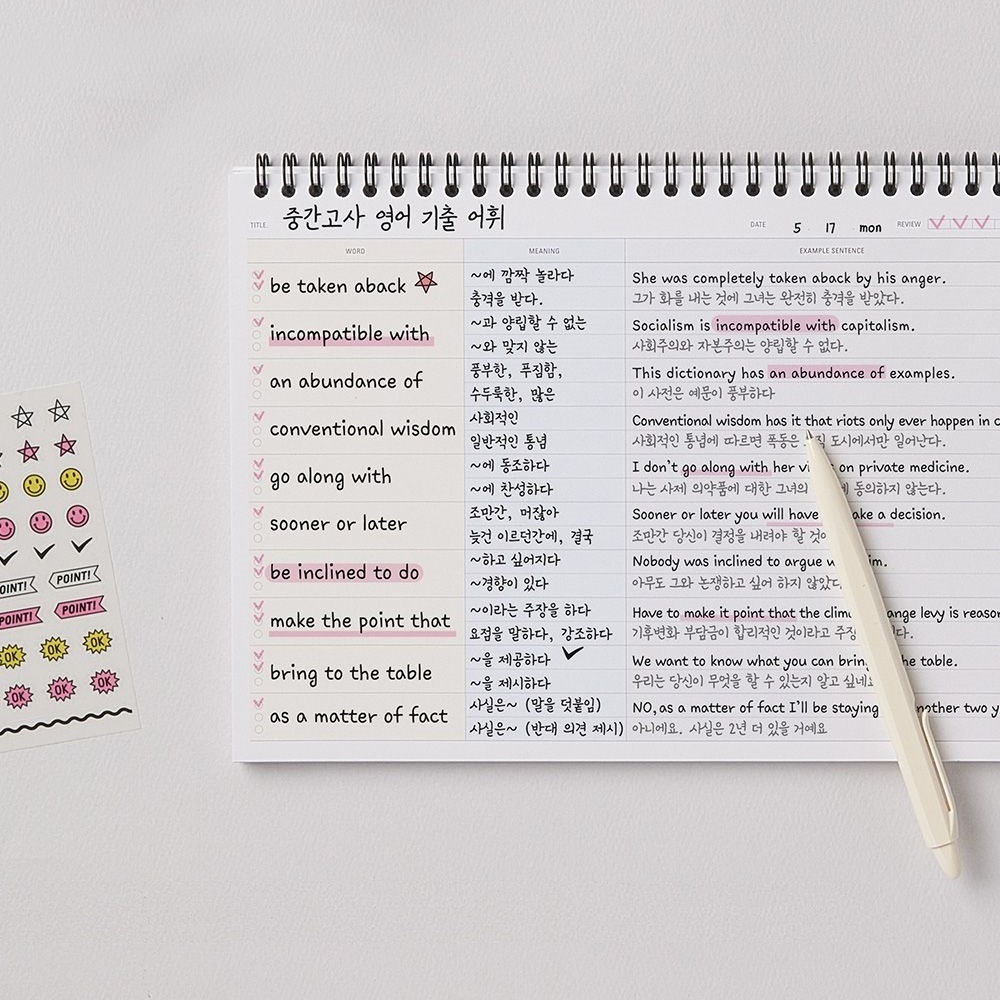 TITLE. 중간고사 영어 기출 어휘
DATE 5 17 mon REVIEW
WORD MEANING EXAMPLE SENTENCE
be taken aback
~에 깜짝 놀라다
충격을 받다.
She was completely taken aback by his anger.
그가 화를 내는 것에 그녀는 완전히 충격을 받았다.
incompatible with
~과 양립할 수 없는
~와 맞지 않는
Socialism is incompatible with capitalism.
사회주의와 자본주의는 양립할 수 없다.
an abundance of
풍부한, 푸짐함,
수두룩한, 많은
This dictionary has an abundance of examples.
이 사전은 예문이 풍부하다
conventional wisdom
사회적인
일반적인 통념
Conventional wisdom has it that riots only ever happen in
사회적인 통념에 따르면 폭동은 도시에서만 일어난다.
go along with
~에 동조하다
~에 찬성하다
I don't go along with her on private medicine.
나는 사제 의약품에 대한 그녀의 동의하지 않는다.
sooner or later
조만간, 머잖아
늦건 이르던간에, 결국
Sooner or later you will have a decision.
조만간 당신이 결정을 내려야 할
be inclined to do
~하고 싶어지다
~경향이 있다
Nobody was inclined to argue
아무도 그와 논쟁하고 싶어 하지
make the point that
~이라는 주장을 하다
요점을 말하다, 강조하다
Have to make it point that the levy is
기후변화 부담금이 합리적인 것이라고
bring to the table
~을 제공하다
~을 제시하다
We want to know what you can table.
우리는 당신이 무엇을 할 수 있는지 알고
as a matter of fact
사실은~ (말을 덧붙임)
사실은~ (반대 의견 제시)
NO, as a matter of fact I'll be staying two
아니에요. 사실은 2년 더 있을 거예요
POINT!
POINT!
OK OK
OK OK OK